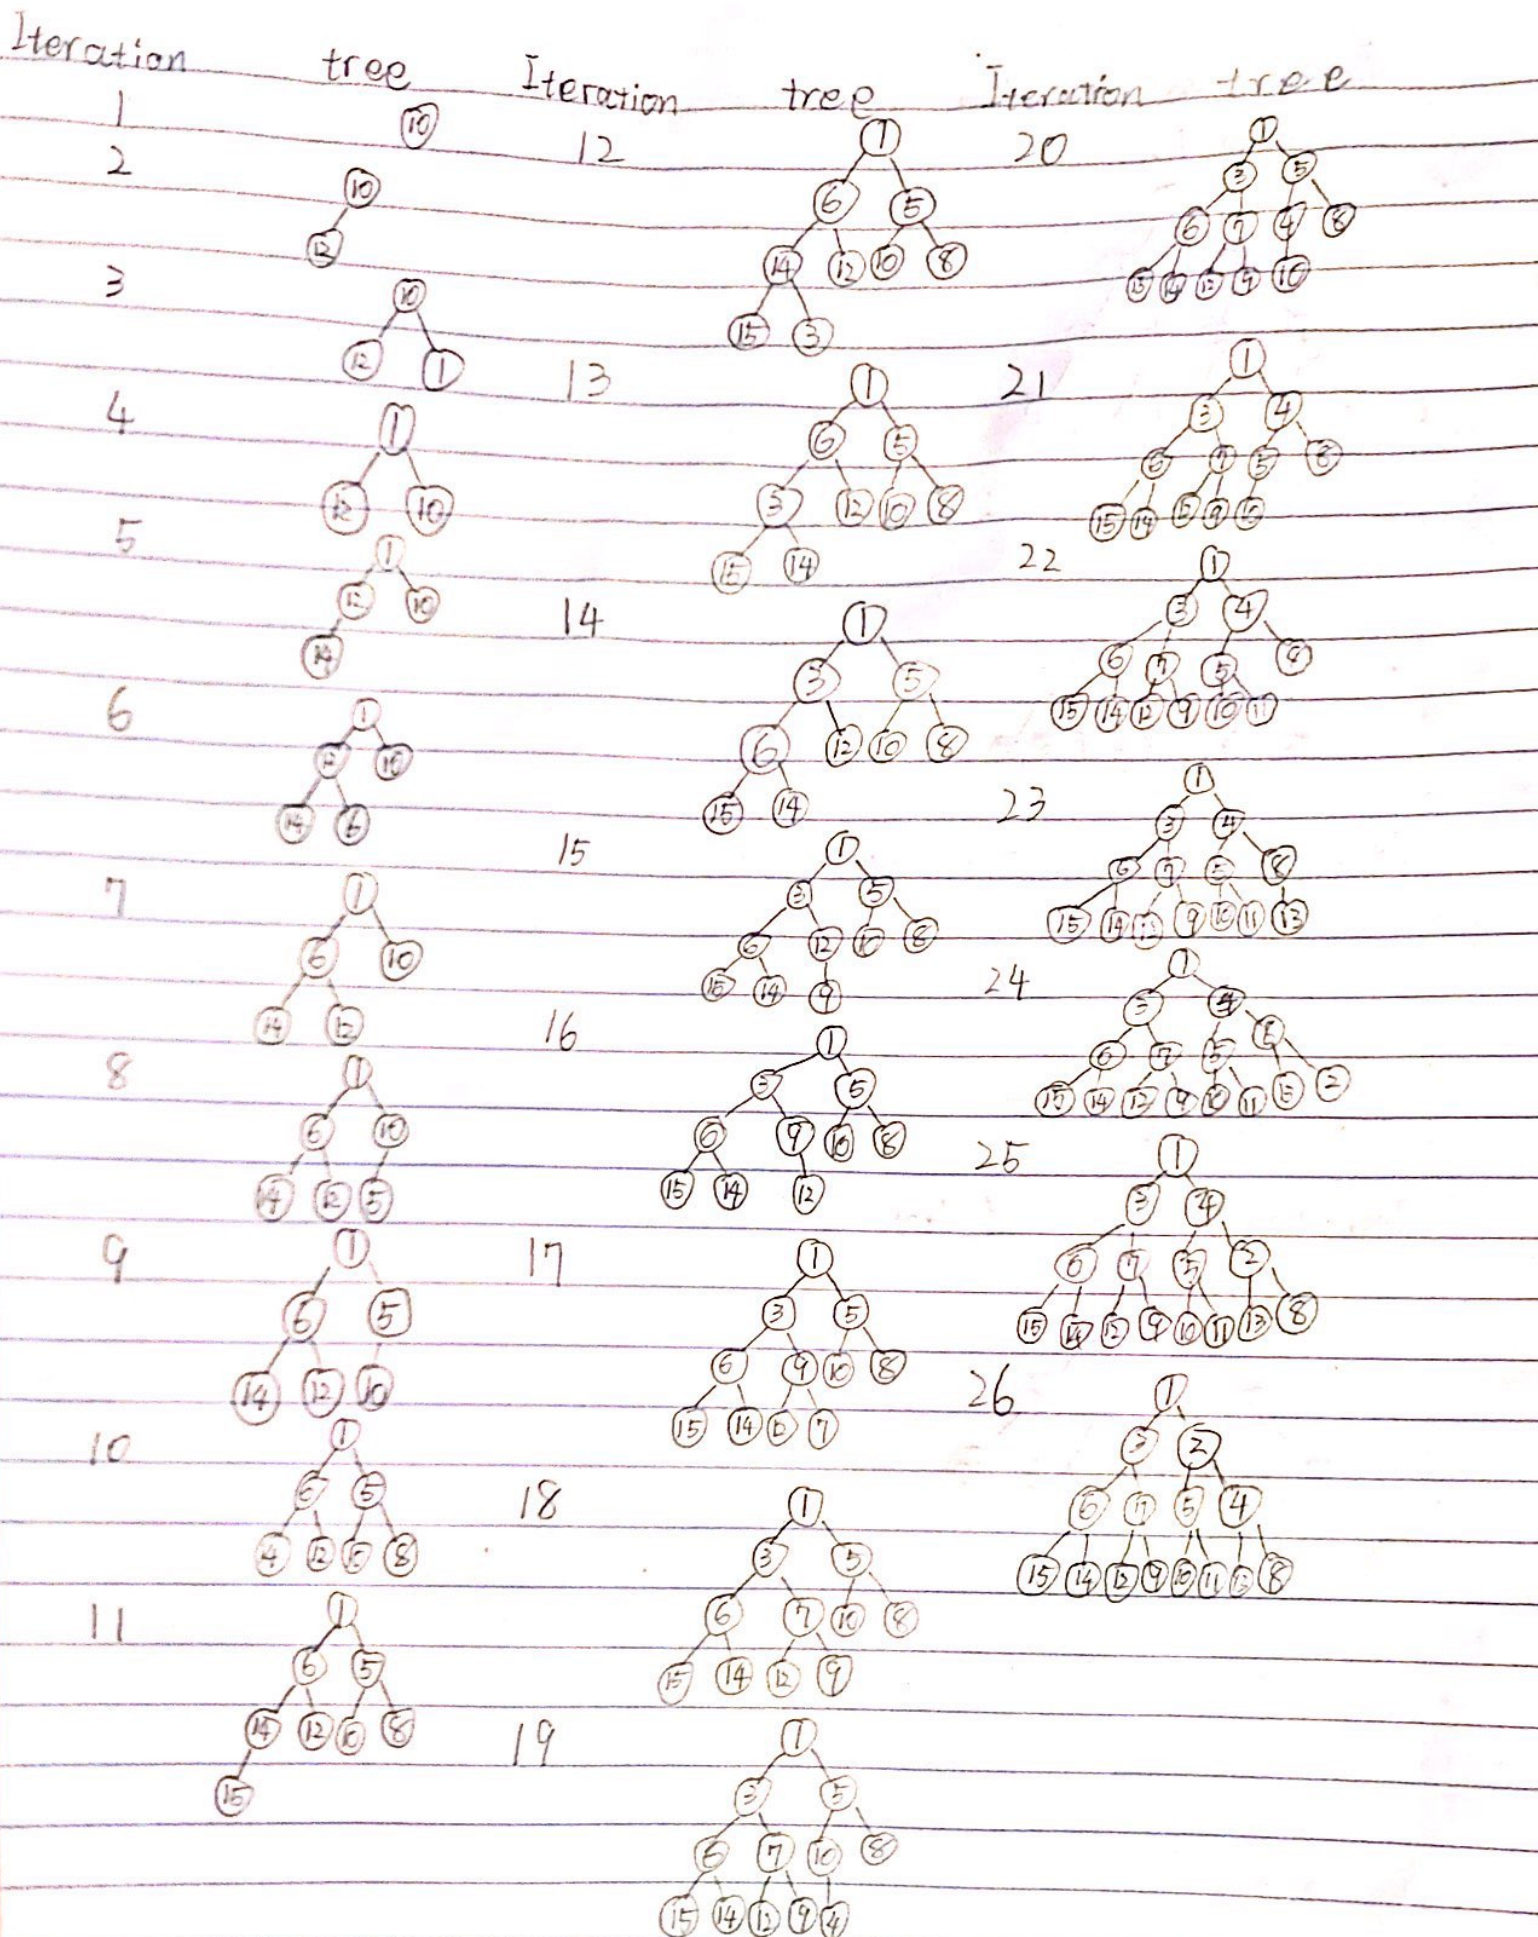 Iteration tree Iteration tree Iteration tree
1
10
2
10
12
3
10
12 1
4
1
12 10
5
1
12 10
14
6
1
12 10
14 6
7
1
6 10
14 12
8
1
6 10
14 12 5
9
1
6 5
14 12 10
10
1
6 5
14 12 10 8
11
1
6 5
14 12 10 8
15
12
1
6 5
14 12 10 8
15 3
13
1
6 5
3 12 10 8
15 14
14
1
3 5
6 12 10 8
15 14
15
1
3 5
6 12 10 8
15 14 9
16
1
3 5
6 9 10 8
15 14 12
17
1
3 5
6 9 10 8
15 14 12 7
18
1
3 5
6 7 10 8
15 14 12 9
19
1
3 5
6 7 10 8
15 14 12 9 4
20
1
3 5
6 7 4 8
15 14 12 9 10
21
1
3 4
6 7 5 8
15 14 12 9 10
22
1
3 4
6 7 5 8
15 14 12 9 10 11
23
1
3 4
6 7 5 8
15 14 12 9 10 11 13
24
1
3 4
6 7 5
15 14 12 9 10 11 13 2
25
1
3 4
6 7 5 2
15 14 12 9 10 11 13 8
26
1
3 2
6 7 5 4
15 14 12 9 10 11 13 8